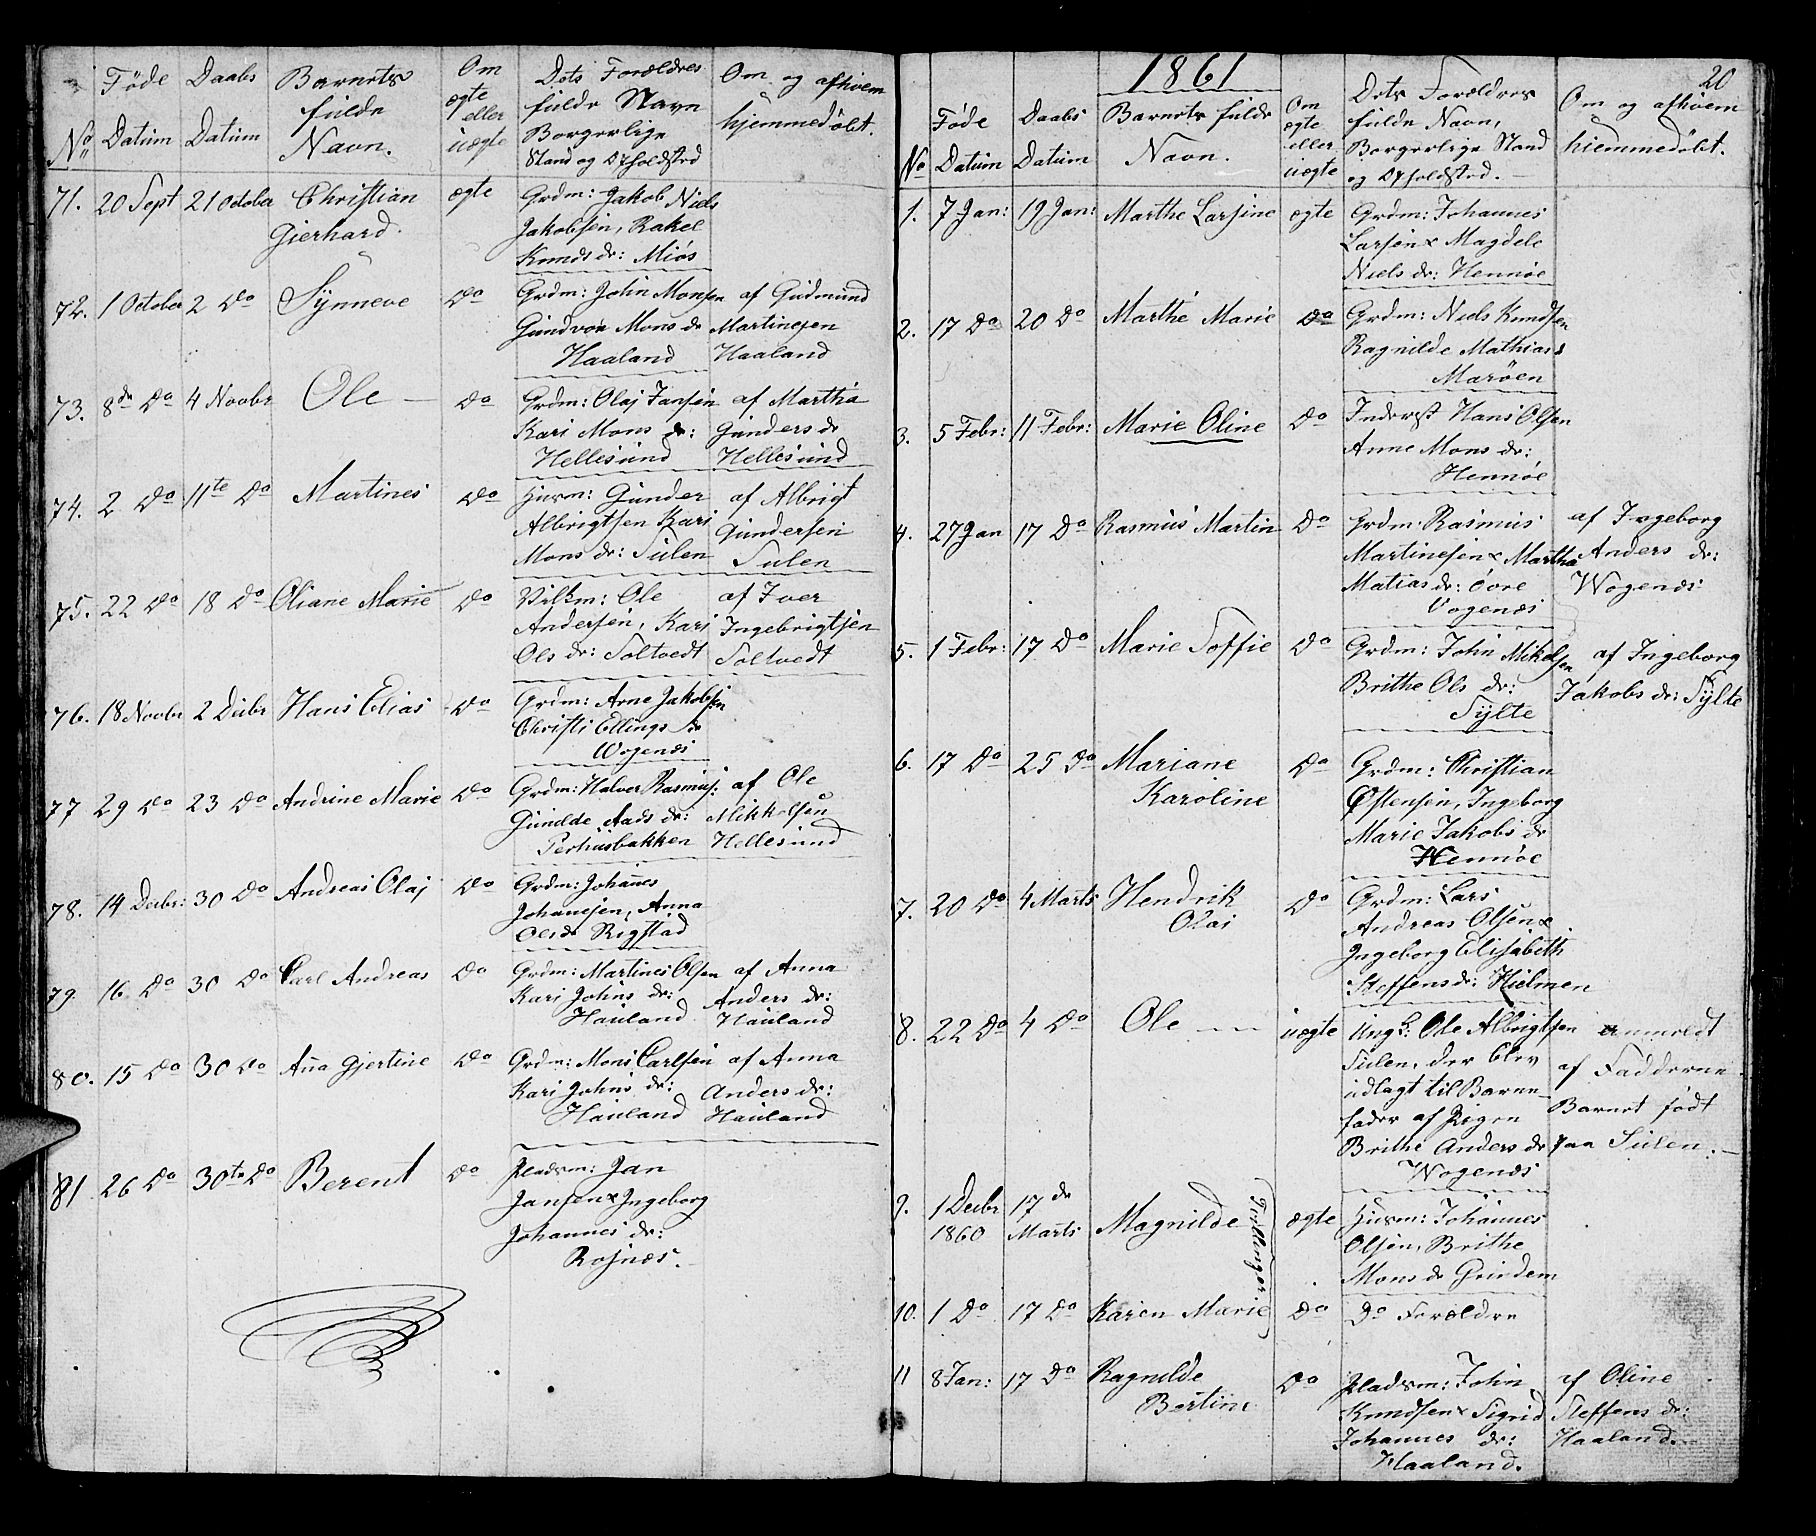 No Føde Datum Daabs Datum Barnets fulde Navn. Om ægte eller uægte Dets Forældres fulde Navn Borgerlige Stand og Opholdsted Om og afhvem hjemmedøbt.
71. 20 Sept 21 October Christian ægte Grdm: Jakob Niels
Gierhard. Jakobsen, Rakel
Knuds dr: Miøs
72. 1 October 2 Do Synneve Do Grdm: John Monsen af Gudmund
Gundvor Mons dr Martinesen
Haaland Haaland
73. 8de Do 4 Novbr Ole — Do Grdm: Olai Jansen af Martha
Kari Mons dr: Gunders dr
Hellesund Hellesund
74. 2 Do 11te Do Martines Do Husm: Gunder af Albrigt
Albrigtsen Kari Gundersen
Mons dr: Sulen Sulen
75. 22 Do 18 Do Oliane Marie Do Vilkm: Ole af Iver
Andersen, Kari Ingebrigtsen
Ols dr: Soltvedt Soltvedt
76. 18 Novbr 2 Decbr Hans Elias Do Grdm: Arne Jakobsen
Christi Ellings dr
Wogenæs
77 29 Do 23 Do Andrine Marie Do Grdm: Halver Rasmus: af Ole
Gunilde Aads dr: Mikkelsen
Perhusbakken Hellesund
78. 14 Decbr: 30 Do Andreas Olaj Do Grdm: Johanes
Johanesen, Anna
Olsdr Rigstad
79. 16 Do 30 Do Carl Andreas Do Grdm: Martines Olsen af Anna
Kari Johns dr: Anders dr:
Hauland Hauland
80. 15 Do 30 Do Ana Gjertine Do Grdm: Mons Carlsen af Anna
Kari Johns dr: Anders dr:
Hauland Hauland
81 26 Do 30te Do Berent Do Pladsm: Jan
Jansen & Ingeborg
Johannes dr:
Rosnæs.
1861
20
No Føde Datum Daabs Datum Barnets fulde Navn. Om ægte eller uægte Dets Forældres fulde Navn, Borgerlige Stand og Opholdsted. Om og afhvem hiemmedøbt.
1. 7 Jan: 19 Jan: Marthe Larsine ægte Grdm: Johannes
Larsen & Magdele
Niels dr: Hennøe
2. 17 Do 20 Do Marthe Marie Do Grdm: Niels Knudsen
Ragnilde Mathias d
Marøen
3. 5 Febr: 11 Febr: Marie Oline Do Inderst Hans Olsen
Anne Mons dr:
Hennøe
4. 27 Jan 17 Do Rasmus Martin Do Grdm: Rasmus af Ingeborg
Martinesen & Martha Anders dr:
Matias dr: Øvre Wogenæs
Vogenæs
5. 1 Febr: 17 Do Marie Soffie Do Grdm: John Mikelsen af Ingeborg
Brithe Ols dr: Jakobs dr: Sylte
Sylte
6. 17 Do 25 Do Mariane Do Grdm: Christian
Karoline Østensen, Ingeborg
Marie Jakobs dr
Hennøe
7. 20 Do 4 Marts Hendrik Do Grdm: Lars
Olai Andreas Olsen &
Ingeborg Elisabeth
Steffens dr: Hielmen
8. 22 Do 4 Do Ole — uægte Ungk: Ole Albrigtsen anmeldt
Sulen, der blev af Fadderne
udlagt til Barne- Barnet født
fader af Pigen paa Sulen.
Brithe Anders dr
Wogenæs
9. 1 Decbr 17de ægte Husm: Johannes
1860 Marts Magnilde Tvillinger Olsen, Brithe
Mons dr Grindem
10. 1 Do 17 Do Karen Marie Do Do Forældre
11 8 Jan: 17 Do Ragnilde Do Pladsm: John af Oline
Bertine Knudsen & Sigrid Steffens dr:
Johannes dr: Haaland.
Haaland.